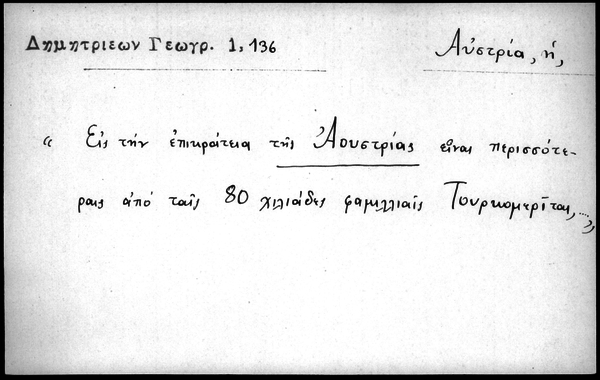 Δημητριεων Γεωγρ. 1, 136
Αὐστρία, ἡ,
« Εἰς τήν ἐπικράτεια τῆς Ἀουστρίας εἶναι περισσότε-
ραις ἀπό ταῖς 80 χιλιάδες φαμιλλιαῖς Τουρκομερῖται,...»